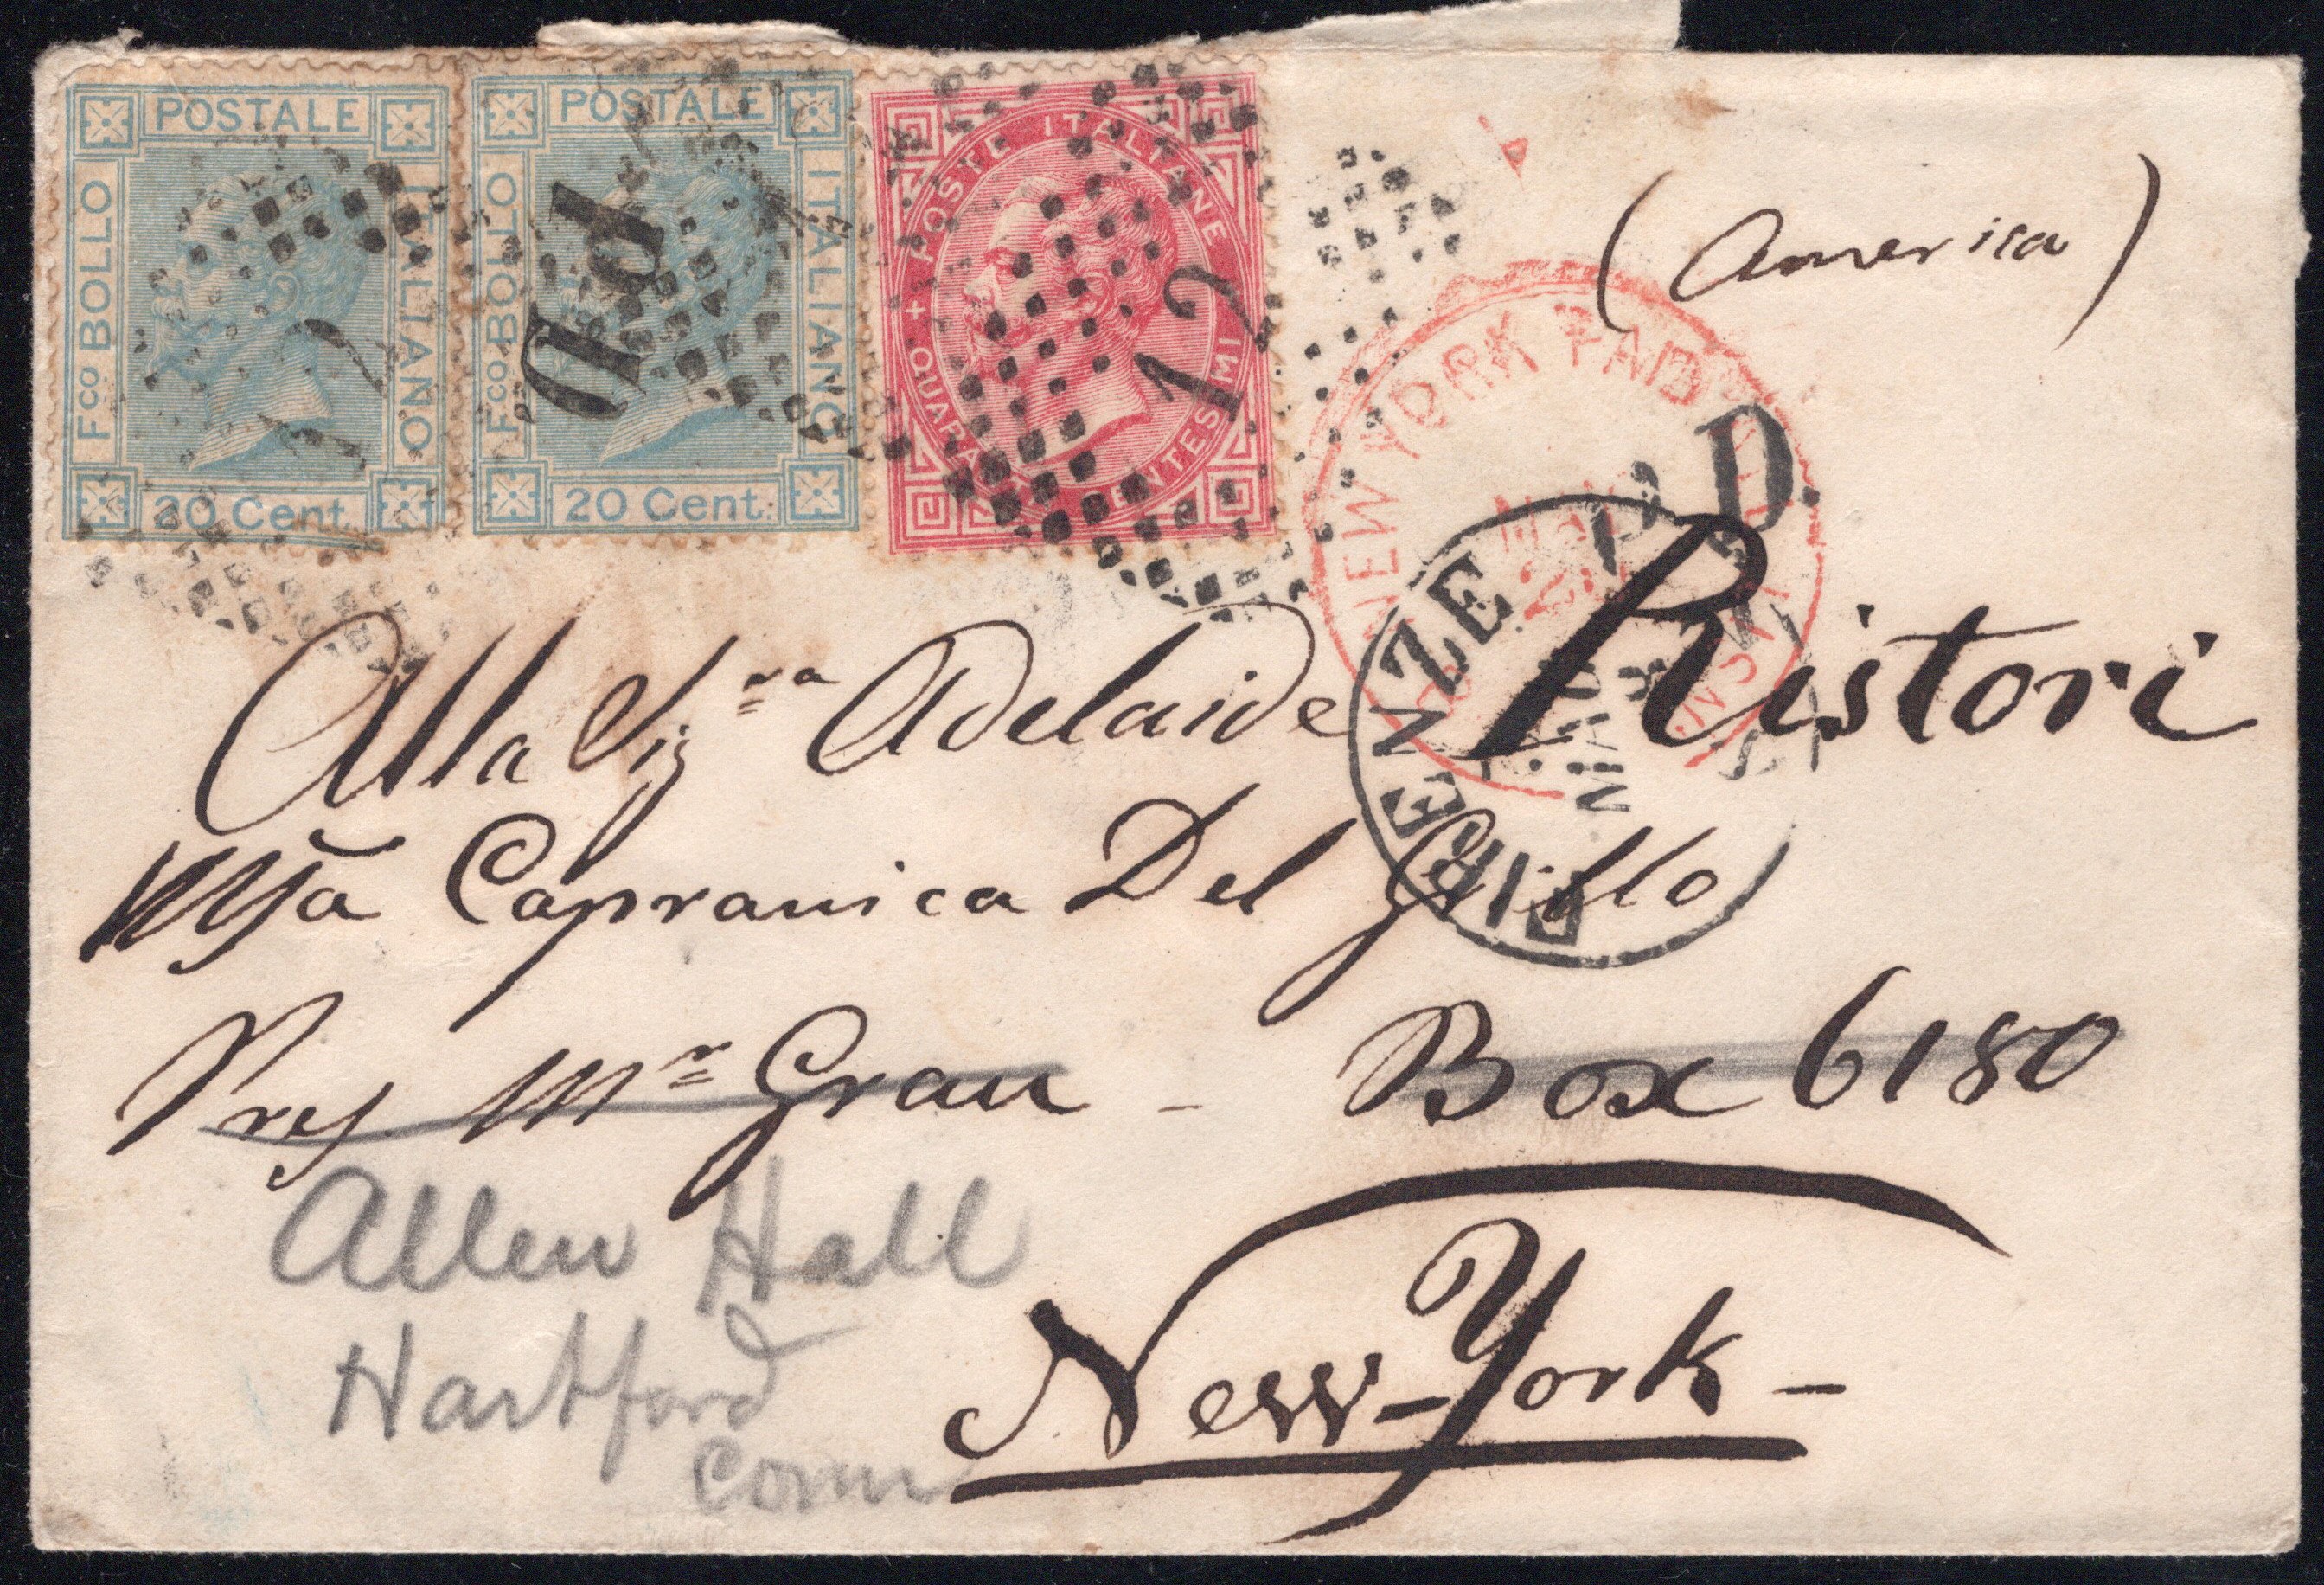 POSTALE
Fco BOLLO
ITALIANO
20 Cent.
POSTALE
Fco BOLLO
ITALIANO
20 Cent.
POSTE ITALIANE
QUARANTA CENTESIMI
12
P.D.
(America)
NEW YORK PAID
FIRENZE
MAR
Alla Sigra Adelaide Ristori
Msa Capranica Del Grillo
Mr Grau - Box 6180
New-York-
Allen Hall
Hartford
Conn